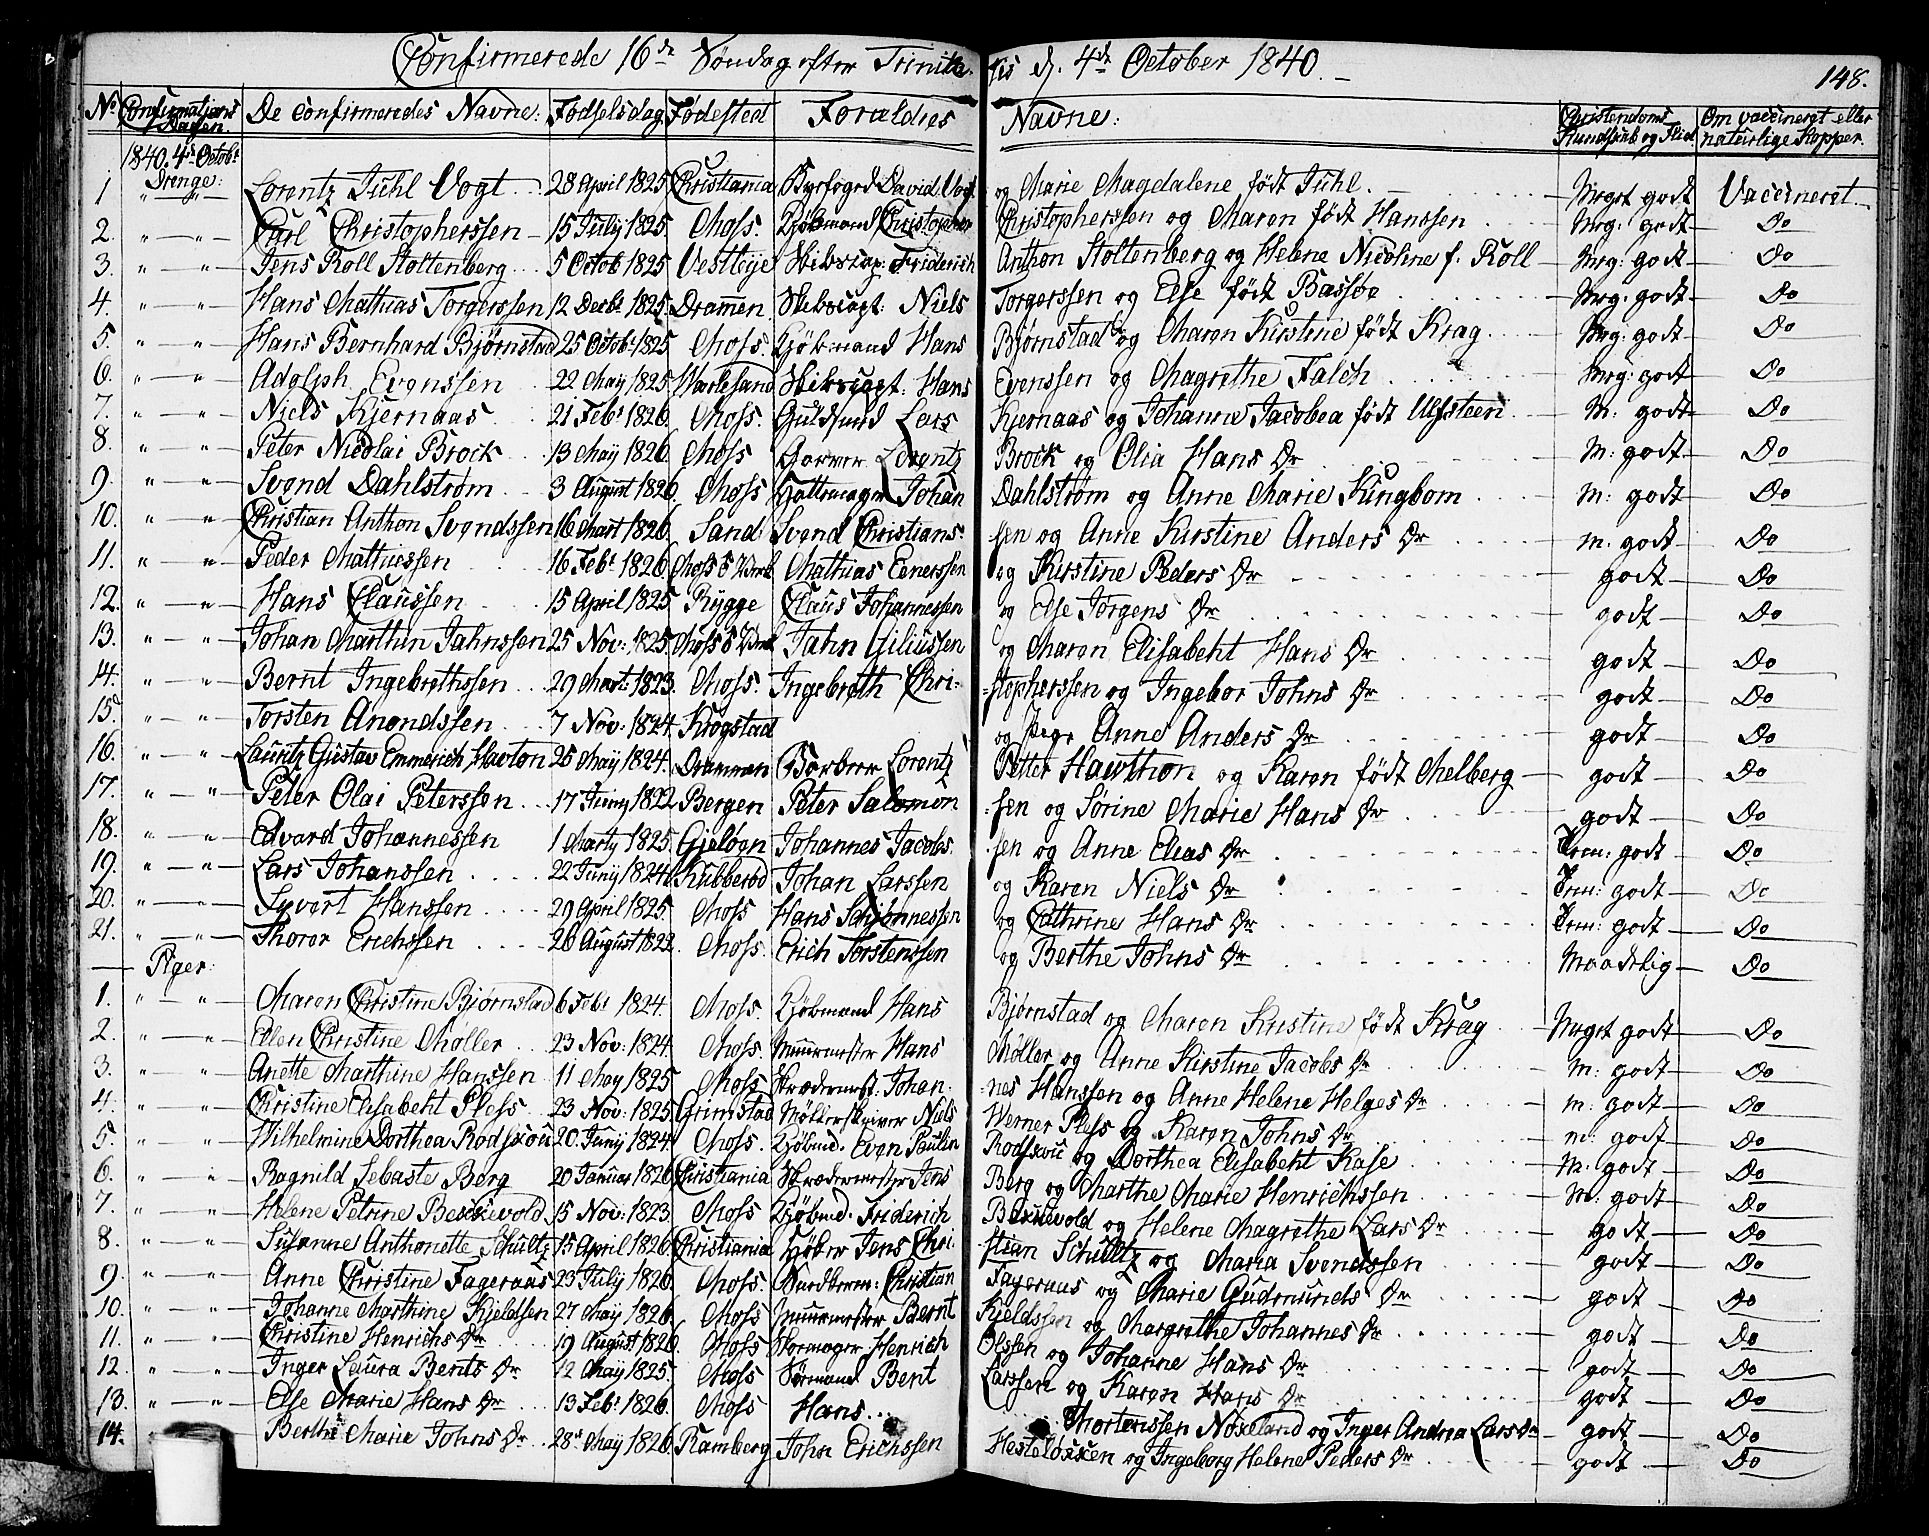 Confirmerede 16de Søndag efter Trinita- tis d. 4de October 1840.
148.
No Confirmations Dagen. De Confirmeredes Navne: Fødselsdag Fødested Forældres Navne: Christendoms Kundskab og Flid Om vaccineret eller naturlige Kopper.
1840. 4de Octobr
Drenge:
1 Lorentz Juhl Vogt 28 April 1825 Christiania Byefoged David Vogt og Marie Magdalene født Juhl. Meget godt Vaccineret.
2. " — " Carl Christopherssen 15 July 1825. Moss. Kjøbmand Christopher Christopherssen og Maren født Hanssen Meg: godt Do
3 " — " Jens Roll Stoltenberg 5 Octob 1825 Vestleije Skibscap: Friderich Anthon Stoltenberg og Helene Nicoline f. Roll Meg: godt Do
4. " — " Hans Mathias Torgerssen 12 Decbr 1825 Dramen Skibscapt: Niels Torgerssen og Else født Bassøe Meg: godt Do
5. " — " Hans Bernhard Bjørnstad 25 Octobr 1825 Moss. Kjøbmand Hans Bjørnstad og Maren Kirstine født Krag Meg: godt Do
6. " — " Adolph Evenssen 22 May 1825 Skibscapt: Hans Evenssen og Magrethe Falch Meg: godt Do
7. " — " Niels Kjernaas 21 Febr 1826 Moss. Guldsmed Lars Kjernaas og Johanne Jacobea født Ulfsteen M: godt Do
8. " — " Peter Nicolai Brock 13 May 1826 Moss Garver Lorentz Brock og Olia Hans Dr m: godt Do
9. " — " Svend Dahlstrøm 3 August 1826. Moss Hattemager Johan Dahlström og Anne Marie Kingbom m: godt Do
10. " — " Christian Anthon Svendssen 16 Mart 1826. Sand: Svend Christians- sen og Anne Kirstine Anders Dr m: godt Do
11. " — " Peder Mathiessen 16 Febr 1826 Mathias Enerssen og Kirstine Peders Dr godt Do
12. " — " Hans Claussen 15 April 1825 Rygge Claus Johannessen og Else Jørgens Dr godt Do
13. " — " Johan Marthin Jahnssen 25 Nov: 1825 Jahn Giliussen og Maren Elisabeht Hans Dr godt Do
14. " — " Bernt Ingebrethssen 29 Mart: 1823. Moss. Ingebreth Chri- stopherssen og Ingebor Johns Dr godt Do
15. " — " Torsten Anondssen 7 Nov: 1824. Krogstad og Anne Anders Dr godt Do
16. " — " Lauritz Gustav Emmerich Havton 25 May 1824. Drammen Barbeer Lorentz Petter Hawthon og Karen født Melberg godt Do
17. " — " Peter Olai Peterssen 17 Juny 1822 Bergen Peter Salomon- sen og Sørine Marie Hans Dr godt Do
18. " — " Edvard Johannessen 1 Marty 1825. Gieløen Johannes Jacobs- sen og Anne Elias Dr Tem: godt Do
19. " — " Lars Johanssen 22 Juny 1824. Kubberød Johan Larssen og Karen Niels Dr Tem: godt Do
20. " — " Syvert Hanssen 29 April 1825. Moss Hans og Cathrine Hans Dr Tem: godt Do
21. " — " Thorer Erichssen 26 August 1823. Moss. Erich Torstenssen og Berthe Johns Dr Maadelig Do
Piger:
1. " — " Maren Christine Bjørnstad 6 Febr 1824. Moss. Kjøbmand Hans Bjørnstad og Maren Kristine født Krag Meget godt Do
2. " — " Elen Christine Møller 23 Nov: 1824. Moss. Muurmester Hans Møller og Anne Kirstine Jacobs Dr m: godt Do
3. " — " Anette Marthine Hanssen 11 May 1825 Moss Skrædermest. Johan- nes Hanssen og Anne Helene Helges Dr m: godt Do
4. " — " Christine Elisabeht Pless 23 Nov: 1825 Grimstad Møllerskriver Niels Werner Pless og Karen Johns Dr m: godt Do
5. " — " Wilhelmine Dorthea 20 Juny 1824. Moss. Kjøbmd. Even Paulin og Dorthea Elisabeht M: godt Do
6. " — " Ragnild Sebaste Berg 20 Januar 1826 Christiania Skrædermester Jens Berg og Marthe Marie Henrichssen M: godt Do
7. " — " Helene Petrine Bexievold 15 Nov: 1823. Moss Kjøbmd. Friderich Bexievold og Helene Magrethe Lars Dr godt Do
8. " — " Susanne Anthonette Schultz 15 April 1826. Christiania Jens Chri- stian Schultz og Maria Svendssen godt Do
9 " — " Anne Christine Fageraas 23 July 1826. Moss. Christian Fageraas og Marie Gudmunds Dr godt Do
10. " — " Johanne Marthine Kjeldssen 27 May 1826. Moss Muurmester Bernt Kjeldssen og Margrethe Johannes Dr godt Do
11. " — " Christine Henrichs Dr 19 August 1826. Moss Henrich Olssen og Johanne Hans Dr godt Do
12. " — " Inger Laura Bents Dr 12 May 1825. Moss Sømand Bent Larssen og Karen Hans Dr godt Do
13. " — " Else Marie Hans Dr 13 Febr 1826. Moss Hans Thortenssen og Inger Andrea Lars Dr godt Do
14. " — " Berthe Marie Johns Dr 28 May 1826. Ramberg John Erichssen og Ingeborg Helene Peders Dr godt Do